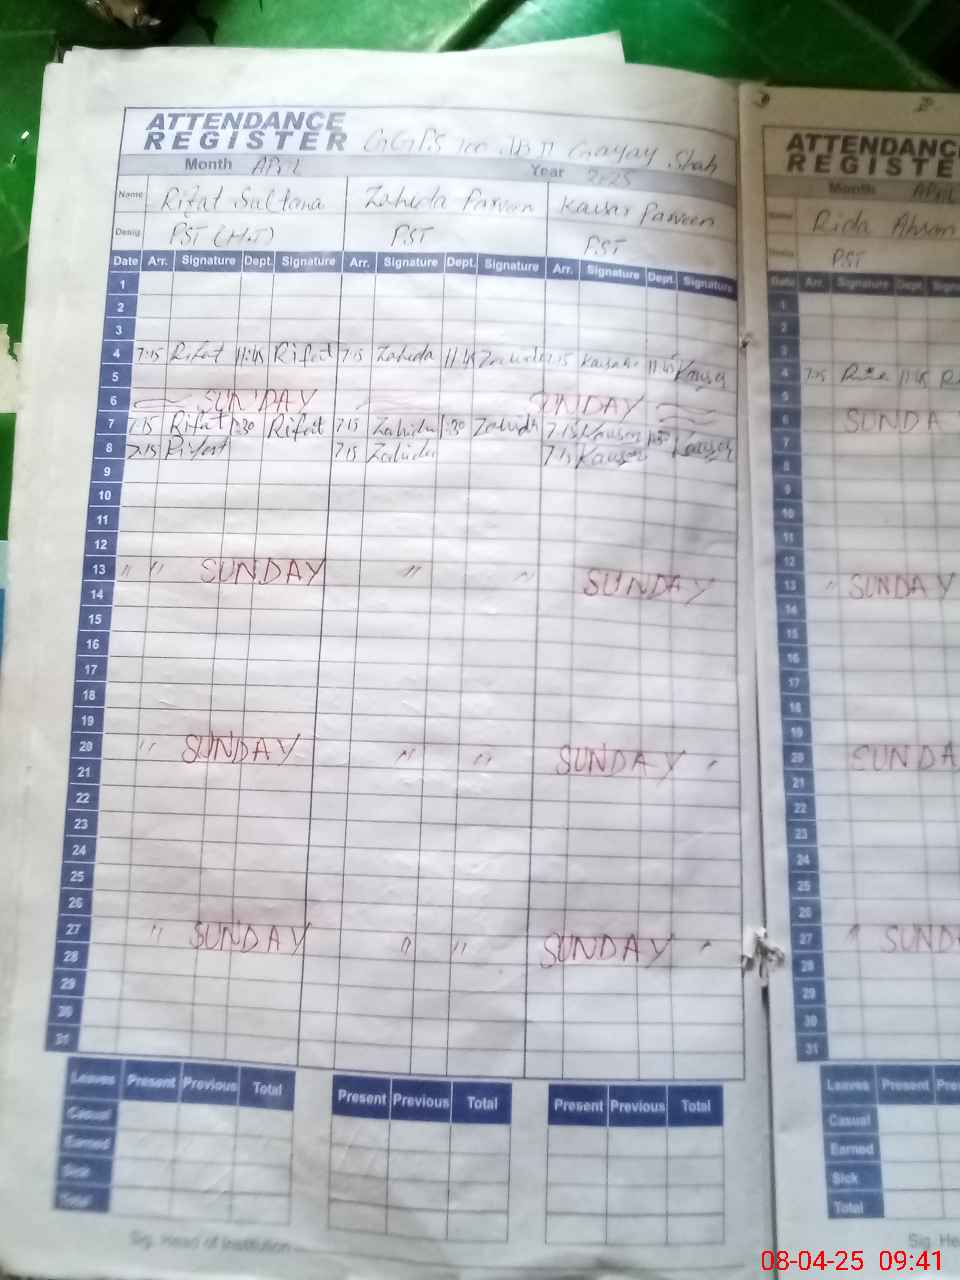 ATTENDANCE
REGISTER GGPS 100 JB II Gayay Shah
Month APRIL Year 2025
Name Rifat Sultana Zahida Parveen Kausar Parveen
Desig. PST (H.T) PST PST
Date Arr. Signature Dept. Signature Arr. Signature Dept. Signature Arr. Signature Dept. Signature
1
2
3
4 7:15 Rifat 11:45 Rifat 7:15 Zahida 11:45 Zahida 7:15 Kausar 11:45 Kausar
5
6 SUNDAY SUNDAY
7 7:15 Rifat 1:30 Rifat 7:15 Zahida 1:30 Zahida 7:15 Kausar 1:30 Kausar
8 7:15 Rifat 7:15 Zahida 7:15 Kausar
9
10
11
12
13 " " SUNDAY " " SUNDAY
14
15
16
17
18
19
20 " SUNDAY " " SUNDAY "
21
22
23
24
25
26
27 " SUNDAY " " SUNDAY "
28
29
30
31
Leaves Present Previous Total Present Previous Total Present Previous Total
Casual
Earned
Sick
Total
Sig. Head of Institution
ATTENDANC
REGISTE
Month APRIL
Name Rida Ahsan
PST
Date Arr. Signature Dept. Sign
1
2
3
4 7:15 Rida 11:45
5
6 SUNDA
7
8
9
10
11
12
13 " SUNDAY
14
15
16
17
18
19
20 SUNDA
21
22
23
24
25
26
27 " SUND
28
29
30
31
Leaves Present Pre
Casual
Earned
Sick
Total
Sig. He
08-04-25 09:41